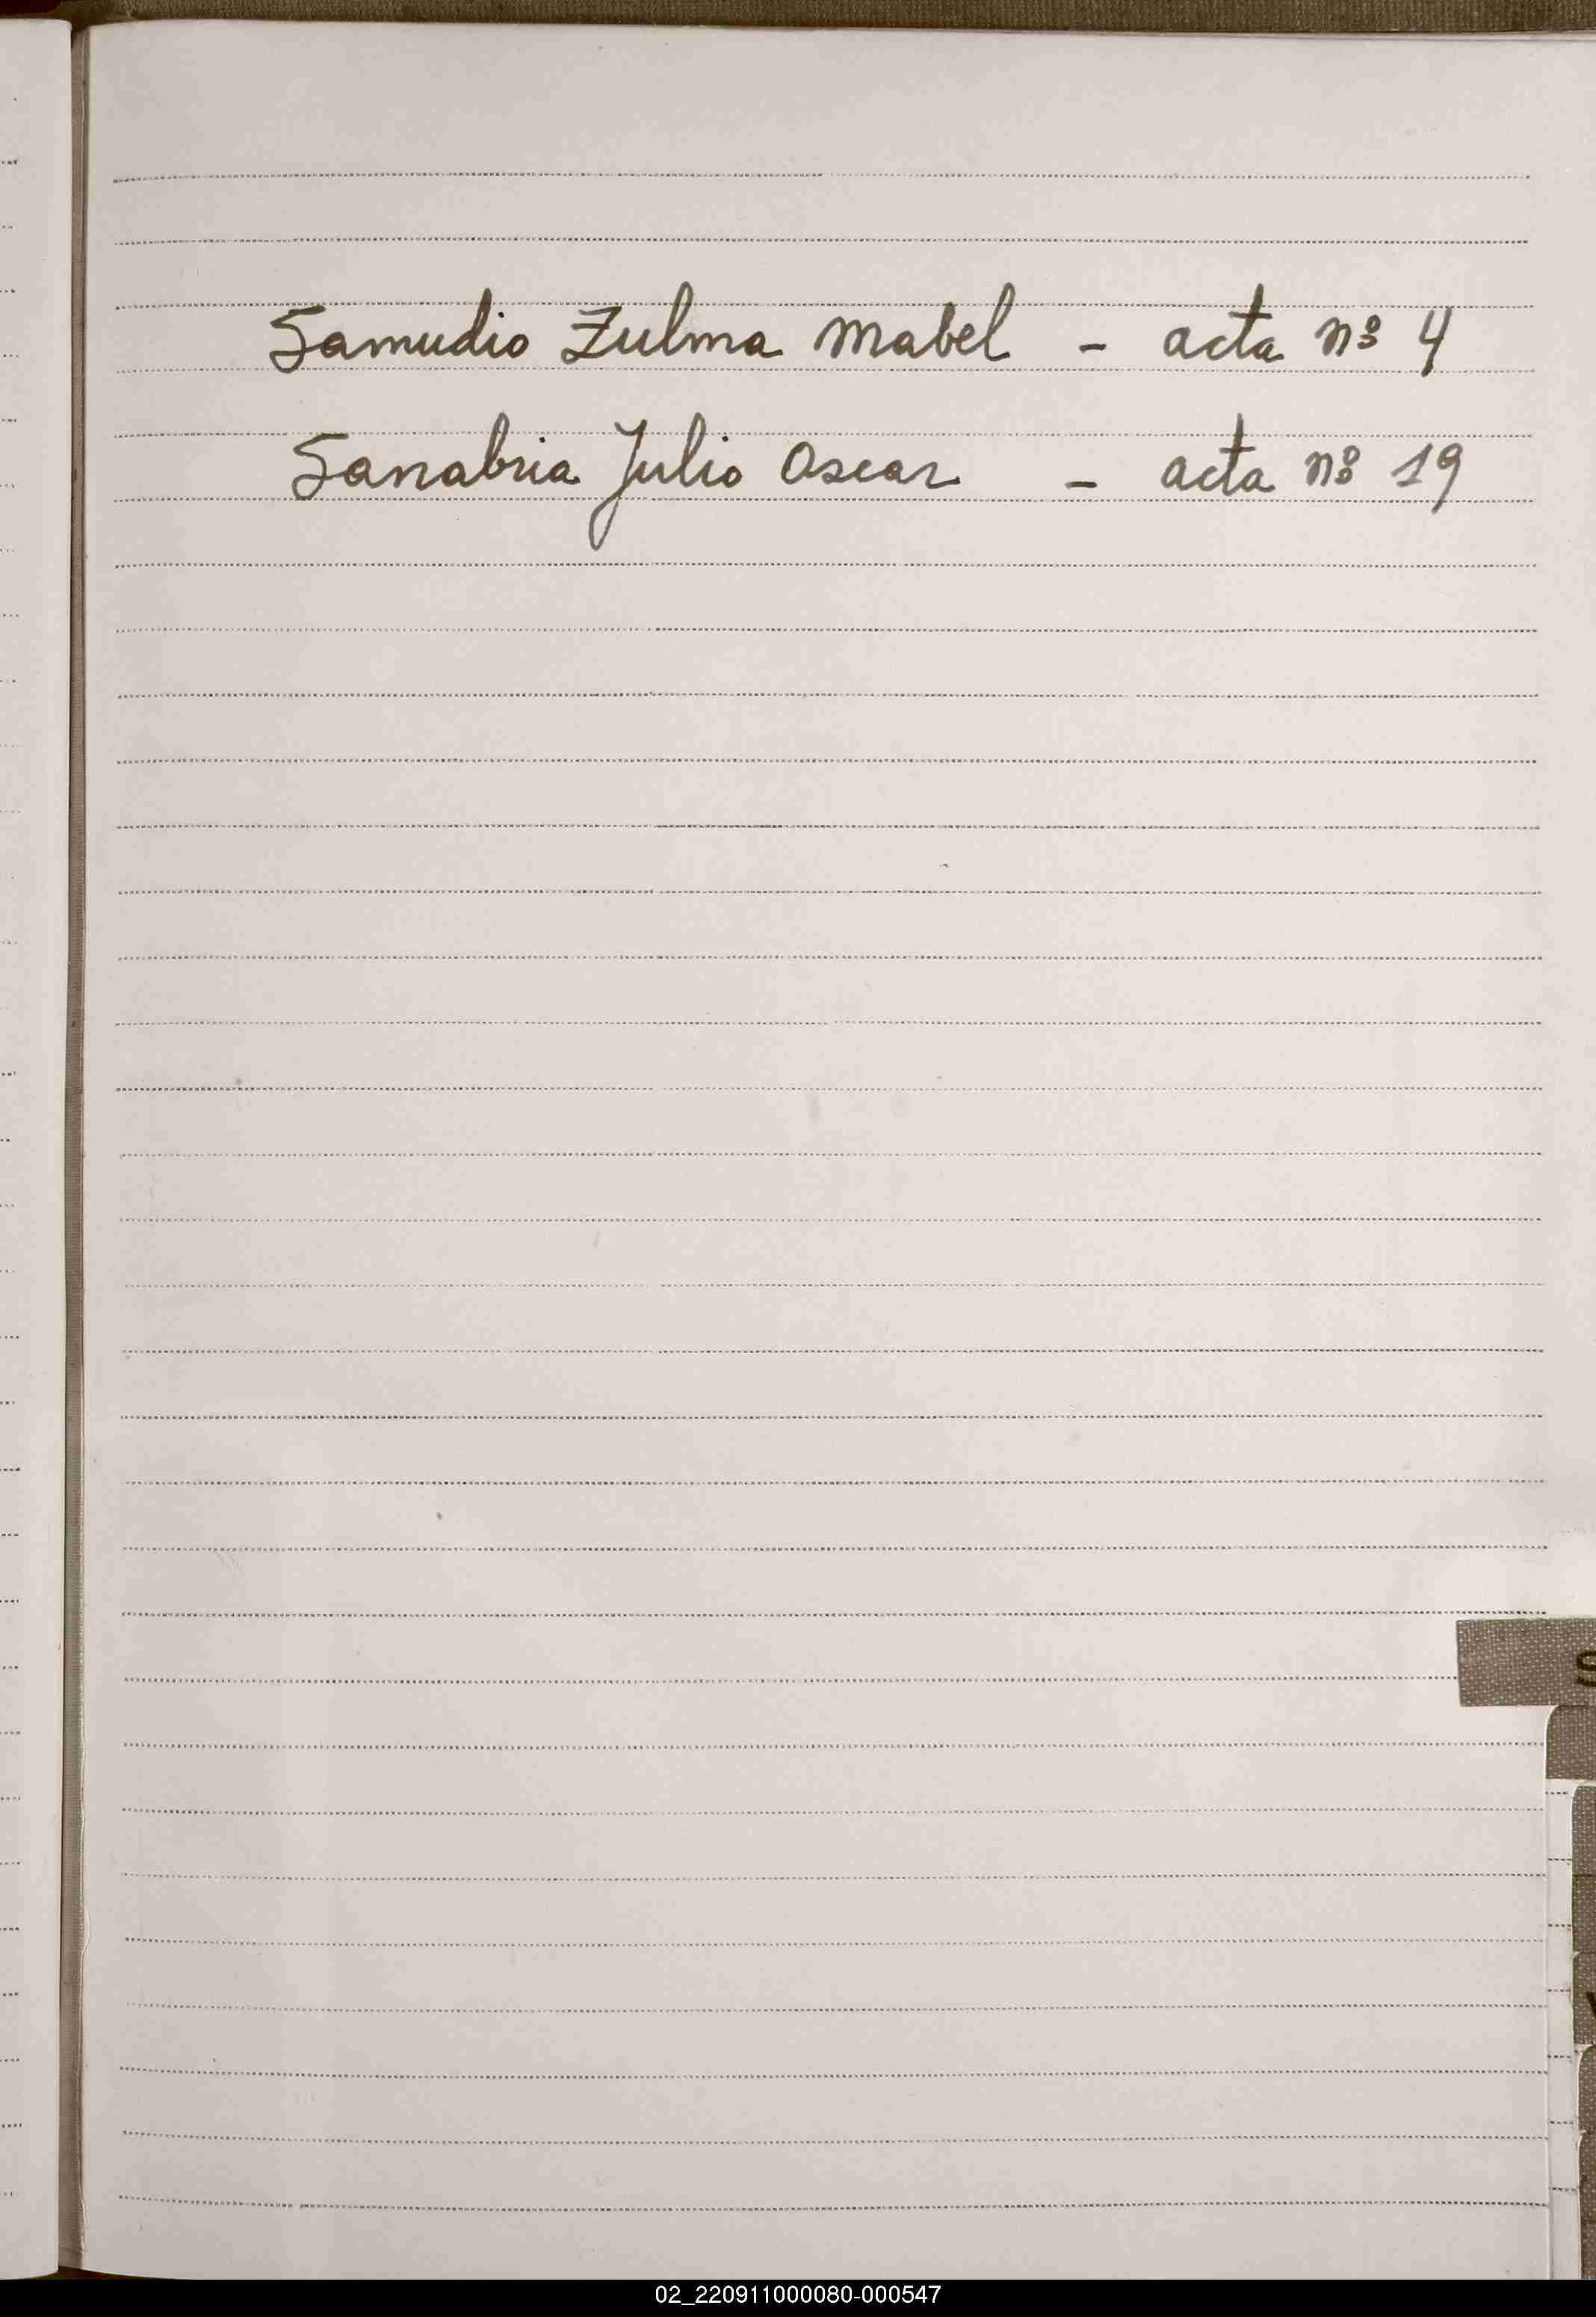 Samudio Zulma Mabel - acta nº 4
Sanabria Julio Oscar - acta nº 19
S
02_220911000080-000547